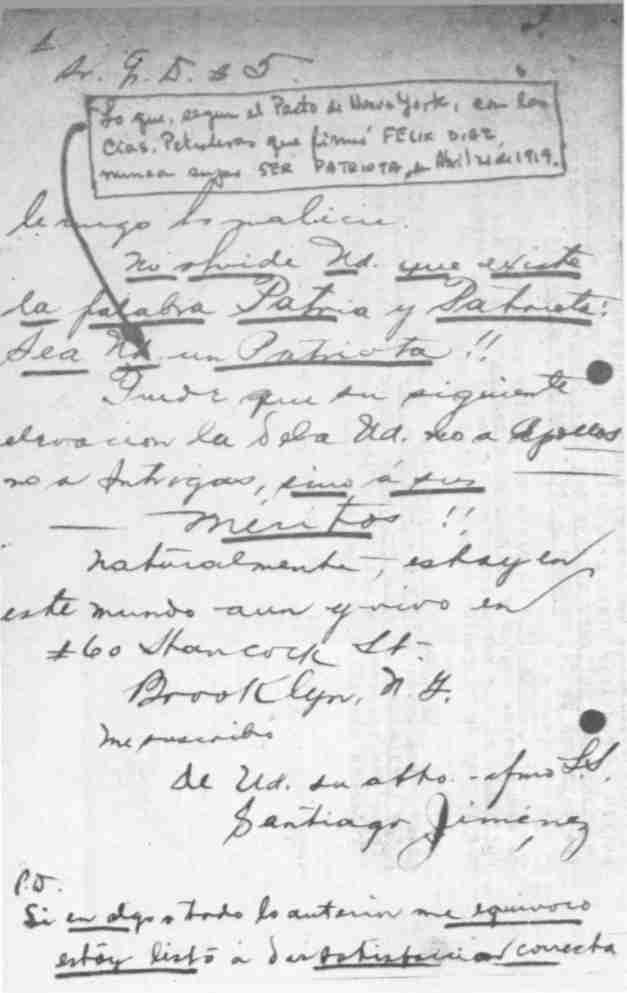 Sr. G. D. & J.
Lo que, segun el Pacto de Nueva York, con las
Cias. Petroleras que firmó FELIX DIAZ,
nunca supo SER PATRIOTA, en Abril 21 de 1919.
le ruego
No olvide Ud. que existe
la palabra Patria y Patriota:
Sea Ud. un Patriota!!
Puede que su siguiente
elevacion la deba Ud. no a Apollos
no a Intrigas, sino á sus
— meritos!!
Naturalmente, estoy en
este mundo aun y vivo en
#60 Hancock St.
Brooklyn, N.Y.
me suscribo
de Ud. su atto. - afmo S.S.
Santiago Jiménez
P.D.
Si en algo o todo lo anterior me equivoco
estóy listo á dar satisfaccion correcta